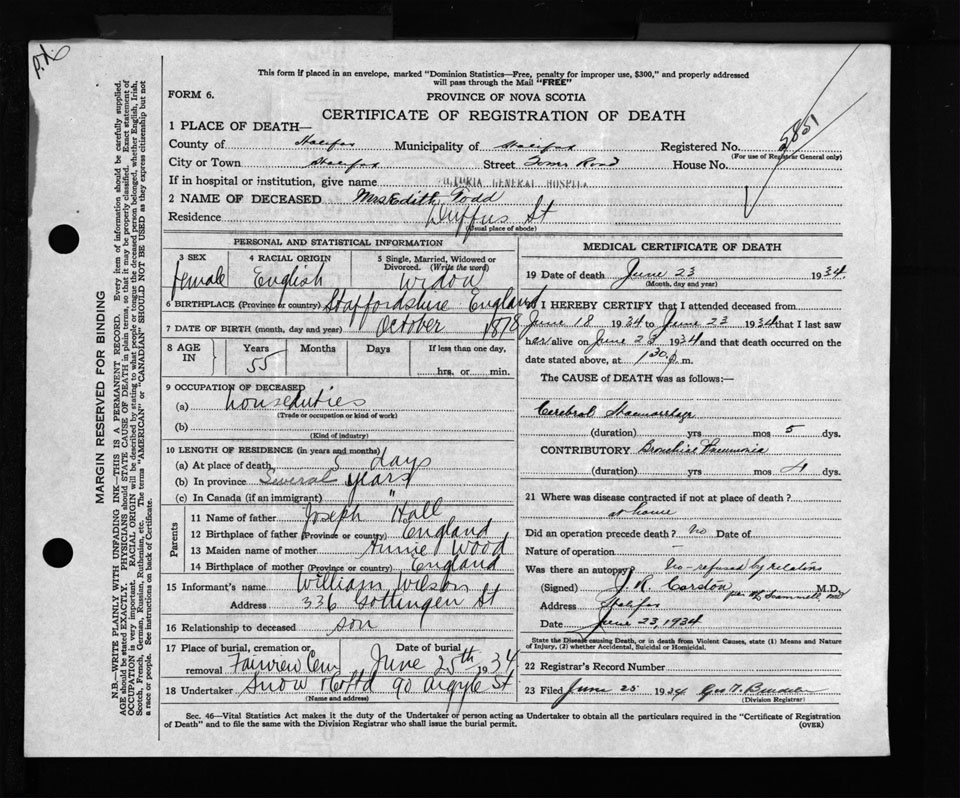 This form if placed in an envelope, marked "Dominion Statistics—Free, penalty for improper use, $300," and properly addressed
will pass through the Mail "FREE"
FORM 6.
PROVINCE OF NOVA SCOTIA
CERTIFICATE OF REGISTRATION OF DEATH
1 PLACE OF DEATH—
County of Halifax Municipality of Halifax Registered No. 5851
(For use of Registrar General only)
City or Town Halifax Street Tower Road House No.
If in hospital or institution, give name VICTORIA GENERAL HOSPITAL
2 NAME OF DECEASED Mrs Edith Todd
Residence Duffus St
(Usual place of abode)
PERSONAL AND STATISTICAL INFORMATION
3 SEX 4 RACIAL ORIGIN 5 Single, Married, Widowed or
Divorced. (Write the word)
female English Widow
6 BIRTHPLACE (Province or country) Staffordshire England
7 DATE OF BIRTH (month, day and year) October 1878
8 AGE IN Years Months Days If less than one day,
55 hrs. or min.
9 OCCUPATION OF DECEASED
(a) house duties
(Trade or occupation or kind of work)
(b)
(Kind of industry)
10 LENGTH OF RESIDENCE (in years and months)
(a) At place of death 5 days
(b) In province Several years
(c) In Canada (if an immigrant) "
Parents
11 Name of father Joseph Hall
12 Birthplace of father (Province or country) England
13 Maiden name of mother Annie Wood
14 Birthplace of mother (Province or country) England
15 Informant's name William Wilson
Address 336 Gottingen St
16 Relationship to deceased son
17 Place of burial, cremation or removal Date of burial
Fairview Cem June 25th 1934
18 Undertaker Snow & Co Ltd 90 Argyle St
(Name and address)
MEDICAL CERTIFICATE OF DEATH
19 Date of death June 23 1934
(Month, day and year)
I HEREBY CERTIFY that I attended deceased from
June 18 1934 to June 23 1934 that I last saw
her alive on June 23 1934 and that death occurred on the
date stated above, at 1 30 p. m.
The CAUSE of DEATH was as follows:
Cerebral Haemorrhage
(duration) yrs mos 5 dys.
CONTRIBUTORY Bronchial Pneumonia
(duration) yrs mos 4 dys.
21 Where was disease contracted if not at place of death ?
at home
Did an operation precede death ? no Date of
Nature of operation
Was there an autopsy? No - refused by relations
(Signed) J. R. Corston M.D.
Address Halifax
Date June 23, 1934
State the Disease causing Death, or in death from Violent Causes, state (1) Means and Nature
of Injury, (2) whether Accidental, Suicidal or Homicidal.
22 Registrar's Record Number
23 Filed June 25 1934
(Division Registrar)
Sec. 46—Vital Statistics Act makes it the duty of the Undertaker or person acting as Undertaker to obtain all the particulars required in the "Certificate of Registration
of Death" and to file the same with the Division Registrar who shall issue the burial permit.
(OVER)
MARGIN RESERVED FOR BINDING
N.B.—WRITE PLAINLY WITH UNFADING INK—THIS IS A PERMANENT RECORD. Every item of information should be carefully supplied.
AGE should be stated EXACTLY. PHYSICIANS should STATE CAUSE OF DEATH in plain terms, so that it may be properly classified. Exact statement of
OCCUPATION is very important. RACIAL ORIGIN will be described by stating to what people or tongue the deceased person belonged, whether English, Irish,
Scotch, French, German, Russian, Ruthenian, etc. The terms "AMERICAN" or "CANADIAN" SHOULD NOT BE USED as they express citizenship but not
a race or people. See instructions on back of Certificate.